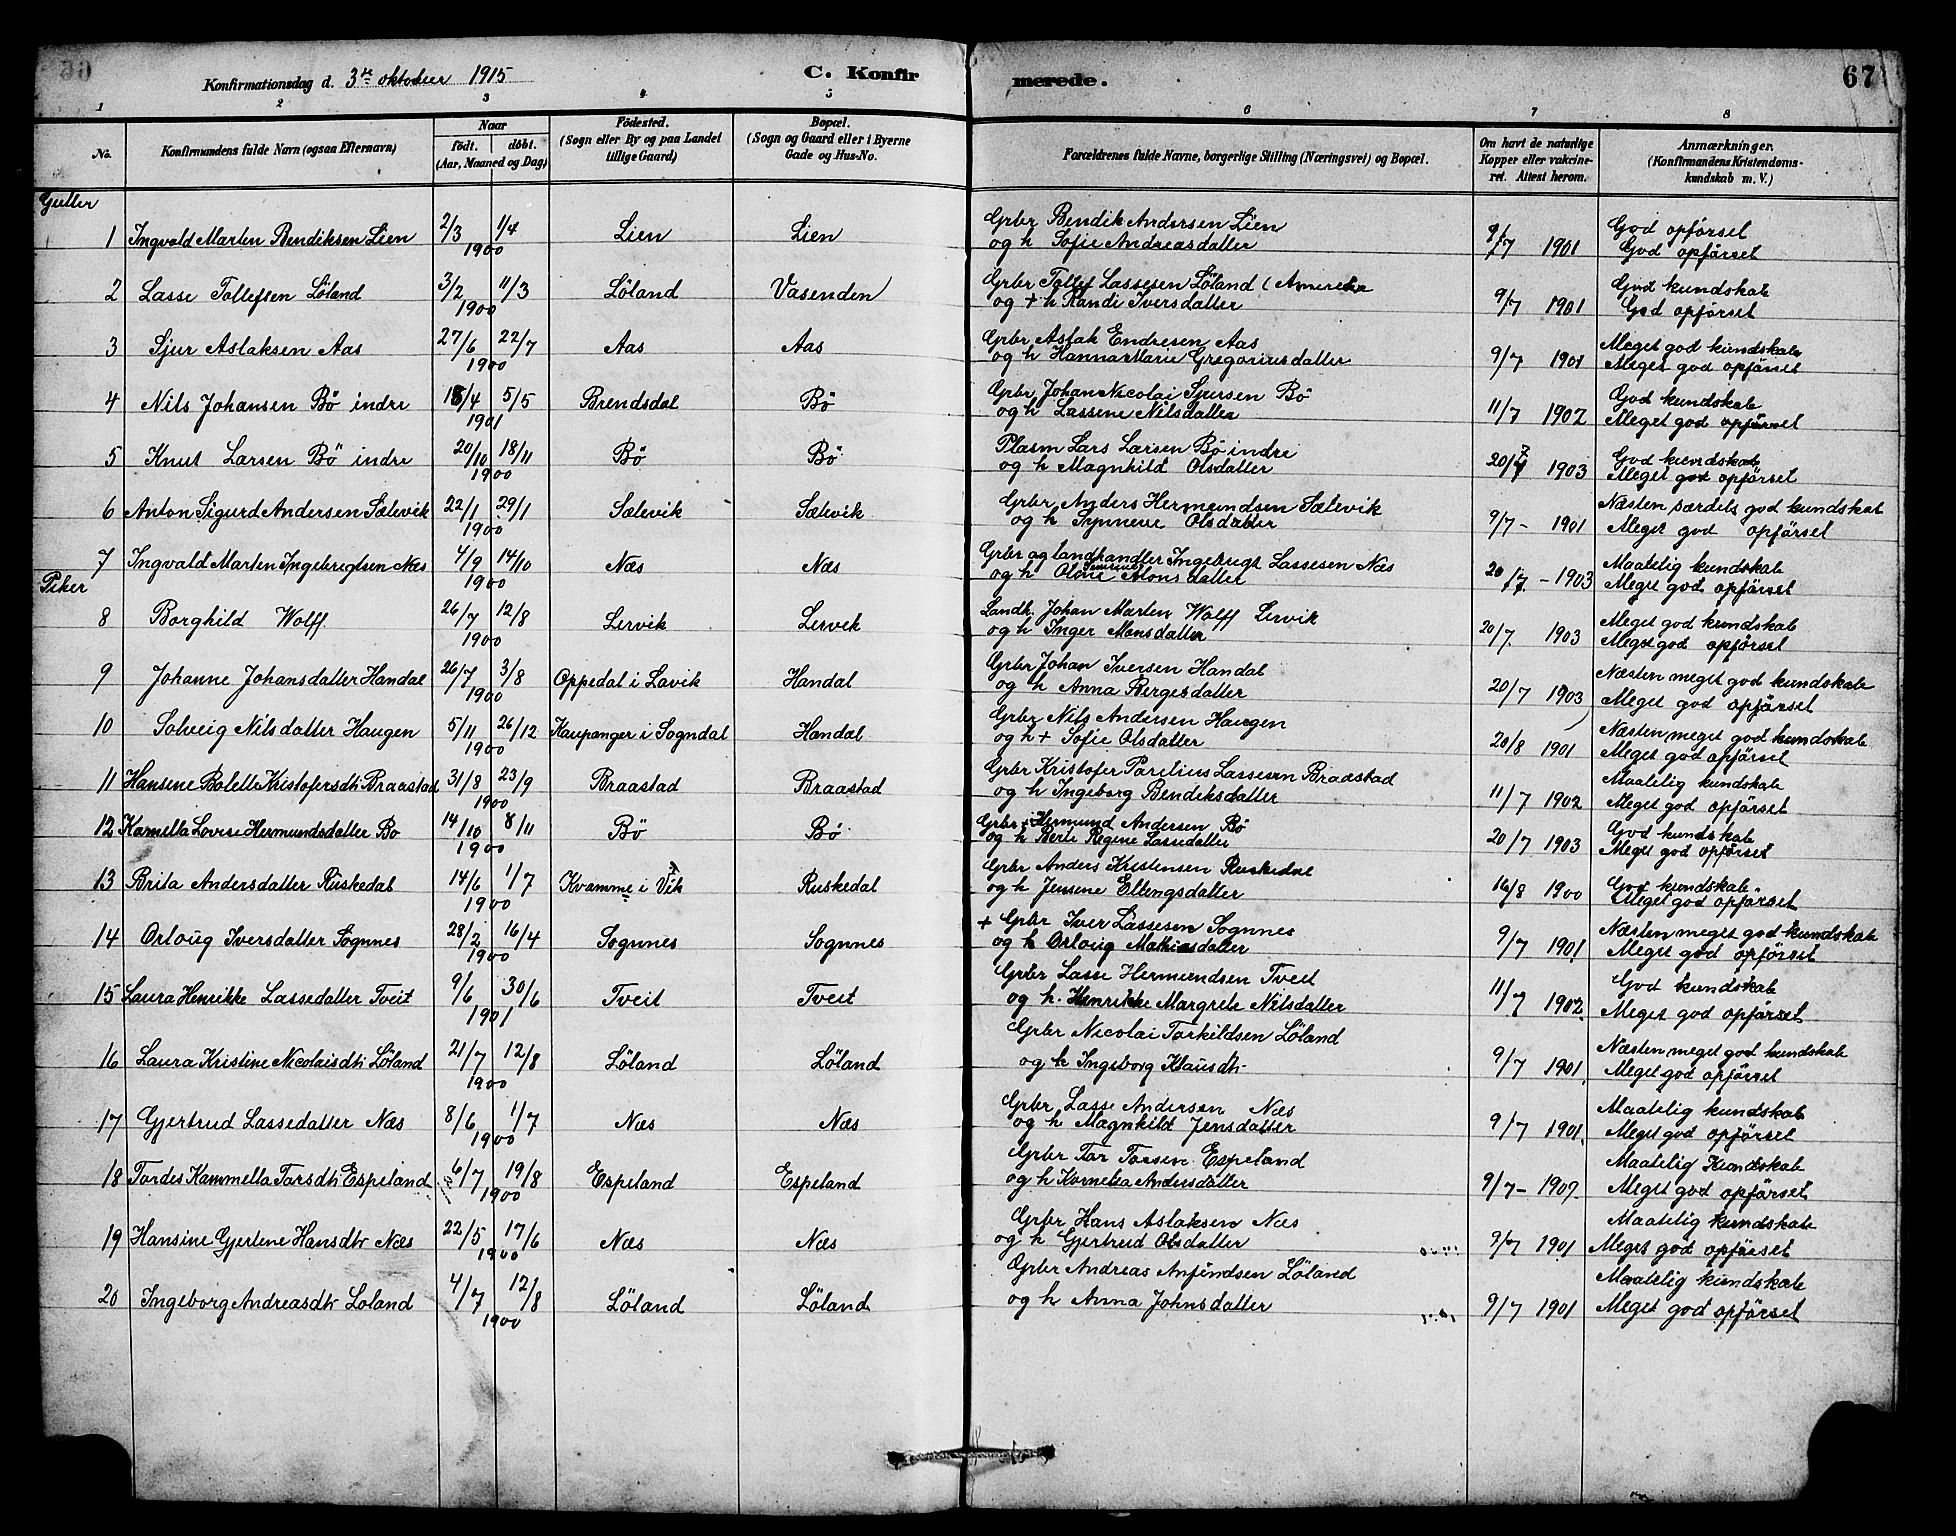 Konfirmationsdag d. 3die oktober 1915
C. Konfirmerede.
67
1 2 3 4 5 6 7 8
No.
Konfirmandens fulde Navn (ogsaa Efternavn)
Naar
födt. döbt.
(Aar, Maaned og Dag)
Födested.
(Sogn eller By og paa Landet
tillige Gaard)
Bopæl.
(Sogn og Gaard eller i Byerne
Gade og Hus-No.
Forældrenes fulde Navne, borgerlige Stilling (Næringsvei) og Bopæl.
Om havt de naturlige
Kopper eller vakcine-
ret. Attest herom.
Anmærkninger.
(Konfirmandens Kristendoms-
kundskab m. V.)
Gutter
1 Ingvald Marten Bendiksen Lien 2/3 1/4 1900 Lien Lien Grbr Bendik Andersen Lien 9/7 1901 God opförsel
og h Sofie Andreasdatter God opförset
2 Lasse Tollefsen Löland 3/2 11/3 1900 Löland Vasenden Grbr Tollef Lassesen Löland (Amerika 9/7 1901 God kundskab
og + h Randi Iversdatter God opförset
3 Sjur Aslaksen Aas 27/6 22/7 1900 Aas Aas Grbr Aslak Endresen Aas 9/7 1901 Meget god kundskab
og h Hanna Marie Gregoriusdatter Meget god opförset
4 Nils Johansen Bö indre 15/4 5/5 1901 Brendsdal Bö Grbr Johan Nicolai Sjursen Bö 11/7 1902 God kundskab
og h Lassene Nilsdatter Meget god opförset
5 Knut Larsen Bö indre 20/10 18/11 1900 Bö Bö Plasm Lars Larsen Bö indre 20/7 1903 God kundskab
og h Magnhild Olsdatter Meget god opförset
6 Anton Sigurd Andersen Sælevik 22/1 29/1 1900 Sælevik Sælevik Grbr Anders Hermundsen Sælevik 9/7 - 1901 Næsten særdels god kundskab
og h Synneve Olsdatter Meget god opförset
7 Ingvald Marten Ingebrigtsen Næs 4/9 14/10 1900 Næs Næs Grbr og landhandler Ingebrigt Lassesen Næs 20/7 - 1903 Maatelig kundskab
og h Oline Monsdatter Meget god opförset
Piker
8 Borghild Wolff 26/7 12/8 1900 Lervik Lervik Landh. Johan Marten Wolff Lervik 20/7 1903 Meget god kundskab
og h Inger Monsdatter Meget god opförset
9 Johanne Johansdatter Handal 26/7 3/8 1900 Oppedal i Lavik Handal Grbr Johan Iversen Handal 20/7 1903 Næsten meget god kundskab
og h Anna Bergesdatter Meget god opförset
10 Solveig Nilsdatter Haugen 5/11 26/12 1900 Kaupanger i Sogndal Handal Grbr Nils Andersen Haugen 20/8 1901 Næsten meget god kundskab
og h + Sofie Olsdatter Meget god opförset
11 Hansene Bolette Kristofersdtr Braastad 31/8 23/9 1900 Braastad Braastad Grbr Kristofer Parelius Lassesen Braastad 11/7 1902 Maatelig kundskab
og h Ingeborg Bendiksdatter Meget god opförset
12 Kamella Lovise Hermundsdatter Bö 14/10 8/11 1900 Bö Bö Grbr + Hermund Andersen Bö 20/7 1903 God kundskab
og h Berte Regine Lassedatter Meget god opförset
13 Brita Andersdatter Ruskedal 14/6 1/7 1900 Kvamme i Vik Ruskedal Grbr Anders Kristensen Ruskedal 16/8 1900 God kundskab
og h Jensene Ellengsdatter Meget god opförset
14 Orloug Iversdatter Sognnes 28/2 16/4 1900 Sognnes Sognnes + Grbr Iver Lassesen Sognnes 9/7 1901 Næsten meget god kundskab
og h Orloug Mathiasdatter Meget god opförset
15 Laura Henrikke Lassedatter Tveit 9/6 30/6 1901 Tveit Tveit Grbr Lasse Hermundsen Tveit 11/7 1902 God kundskab
og h. Henrikke Margrete Nilsdatter Meget god opförset
16 Laura Kristine Nicolaisdtr Löland 21/7 12/8 1900 Löland Löland Grbr Nicolai Torkildsen Löland 9/7 1901 Næsten meget god kundskab
og h Ingeborg Klausdtr Meget god opförset
17 Gjertrud Lassedatter Næs 8/6 1/7 1900 Næs Næs Grbr Lasse Andersen Næs 9/7 1901 Maatelig kundskab
og h Magnhild Jensdatter Meget god opförset
18 Tordes Kammella Torsdtr Espeland 6/7 19/8 1900 Espeland Espeland Grbr Tor Torsen Espeland 9/7 - 1907 Maatelig Kundskab
og h Kornelia Andersdatter Meget god opförset
19 Hansine Gjertine Hansdtr Næs 22/5 17/6 1900 Næs Næs Grbr Hans Aslaksen Næs 9/7 1901 Maatelig kundskab
og h Gjertrud Olsdatter Meget god opförset
20 Ingeborg Andreasdtr Löland 4/7 12/8 1900 Löland Löland Grbr Andreas Anfindsen Löland 9/7 1901 Maatelig kundskab
og h Anna Johnsdatter Meget god opförset